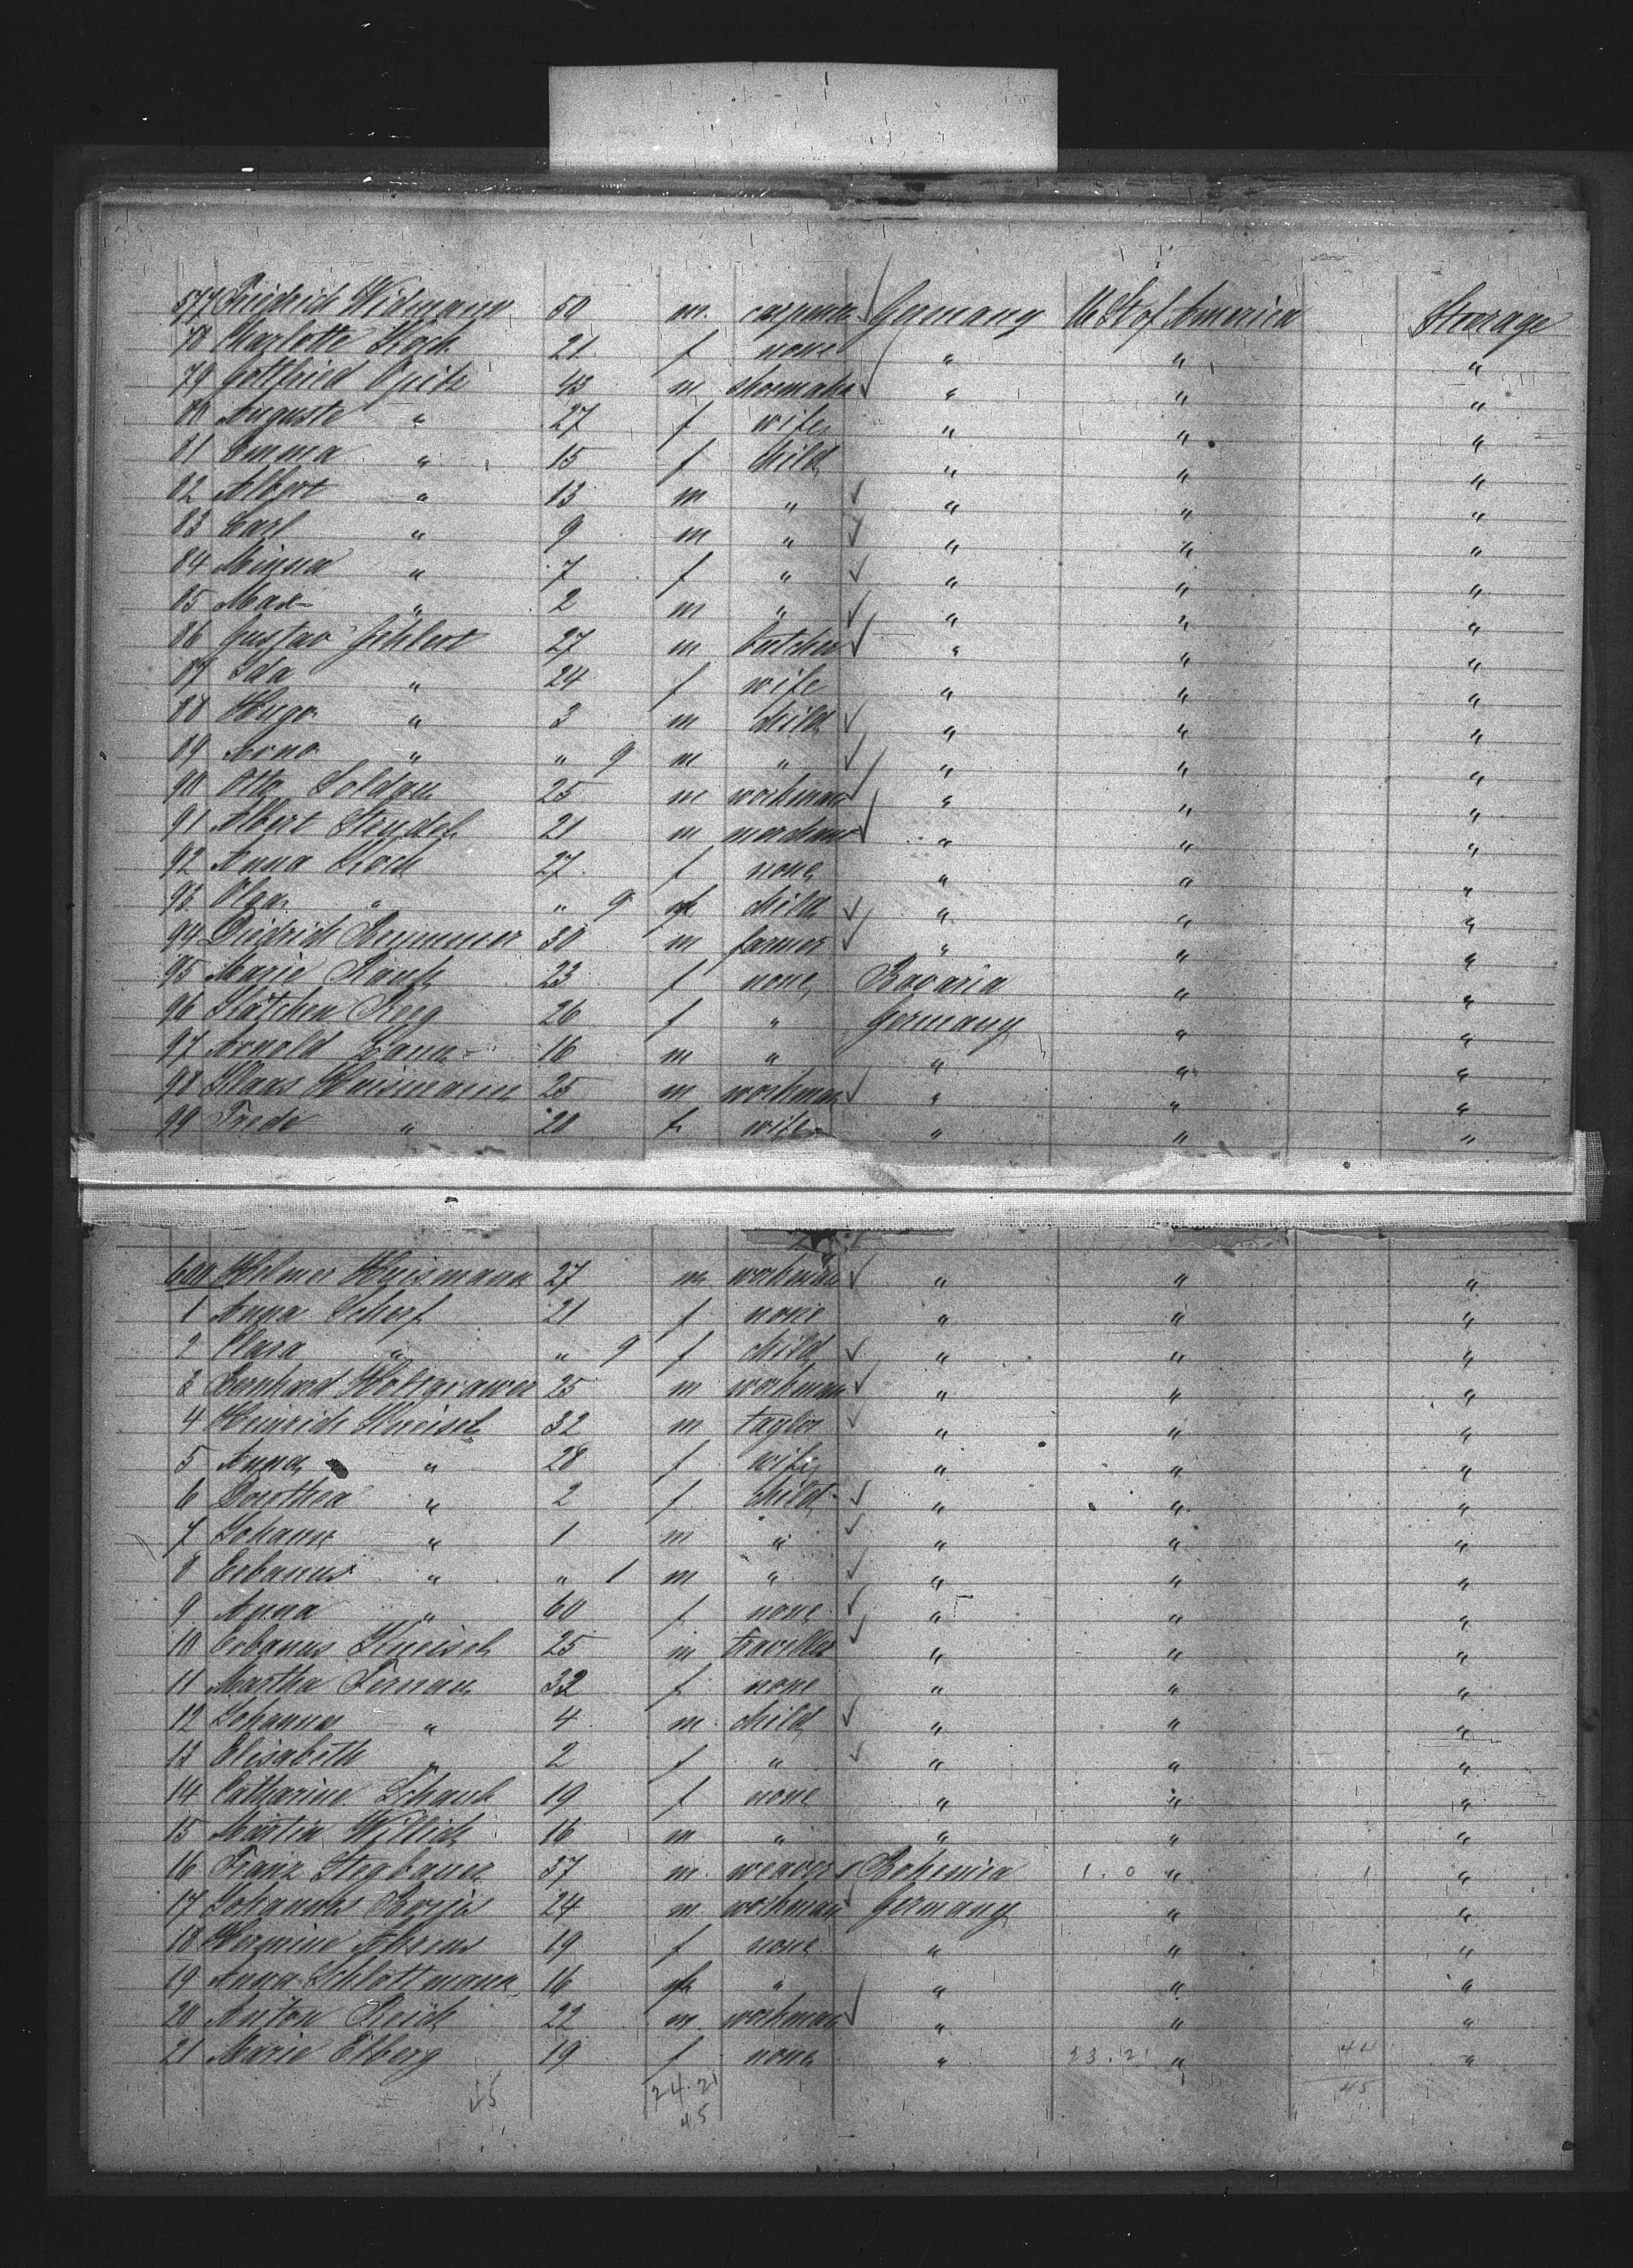 577 Friedrich Widmann 50 m. carpenter Germany U St of America Steerage
78 Charlotte Koch 21 f none " " "
79 Gottfried Opitz 43 m shoemaker " " "
80 Auguste " 27 f wife " " "
81 Emma " 15 f child " " "
82 Albert " 13 m " " " "
83 Carl " 9 m " " " "
84 Minna " 7 f " " " "
85 Max " 2 m " " " "
86 Gustav 27 m butcher " " "
87 Ida " 24 f wife " " "
88 Hugo " 3 m child " " "
89 Arno " " 9 m " " " "
90 Otto Soldau 25 m workman " " "
91 Albert Strudel 21 m merchant " " "
92 Anna Koch 27 f none " " "
93 Olga " " 9 f child " " "
94 Diedrich Brummer 30 m farmer " " "
95 Marie Rauh 23 f none Bavaria " "
96 Kätchen Berg 26 f " Germany " "
97 Arnold 16 m " " " "
98 Klaas Huismann 25 m workman " " "
99 Frede " 20 f wife " " "
600 Helmer Huismann 27 m workman " " "
1 Anna Scherf 21 f none " " "
2 Clara " " 9 f child " " "
3 Bernhard Holtgrawer 25 m workman " " "
4 Heinrich Kneisel 32 m taylor " " "
5 Anna " 28 f wife " " "
6 Dorothea " 2 f child " " "
7 Johann " 1 m " " " "
8 Erbanus " " 1 m " " " "
9 Anna " 60 f none " " "
10 Erbanus Kneisel 25 m traveller " " "
11 Martha Fernau 32 f none " " "
12 Johannes " 4 m child " " "
13 Elisabeth " 2 f " " " "
14 Catharine Schaub 19 f none " " "
15 Martin Willich 16 m " " " "
16 Franz Stegbauer 37 m. weaver Bohemia 1.0 " 1 "
17 Johannes 24 m. workman Germany " "
18 Hermine Ahrens 19 f none " " "
19 Anna Schlottmann 16 f " " " "
20 Anton Reich 22 m. workman " " "
21 Marie Elberg 19 f none " 23.21 " 44 "
24.21 45
45